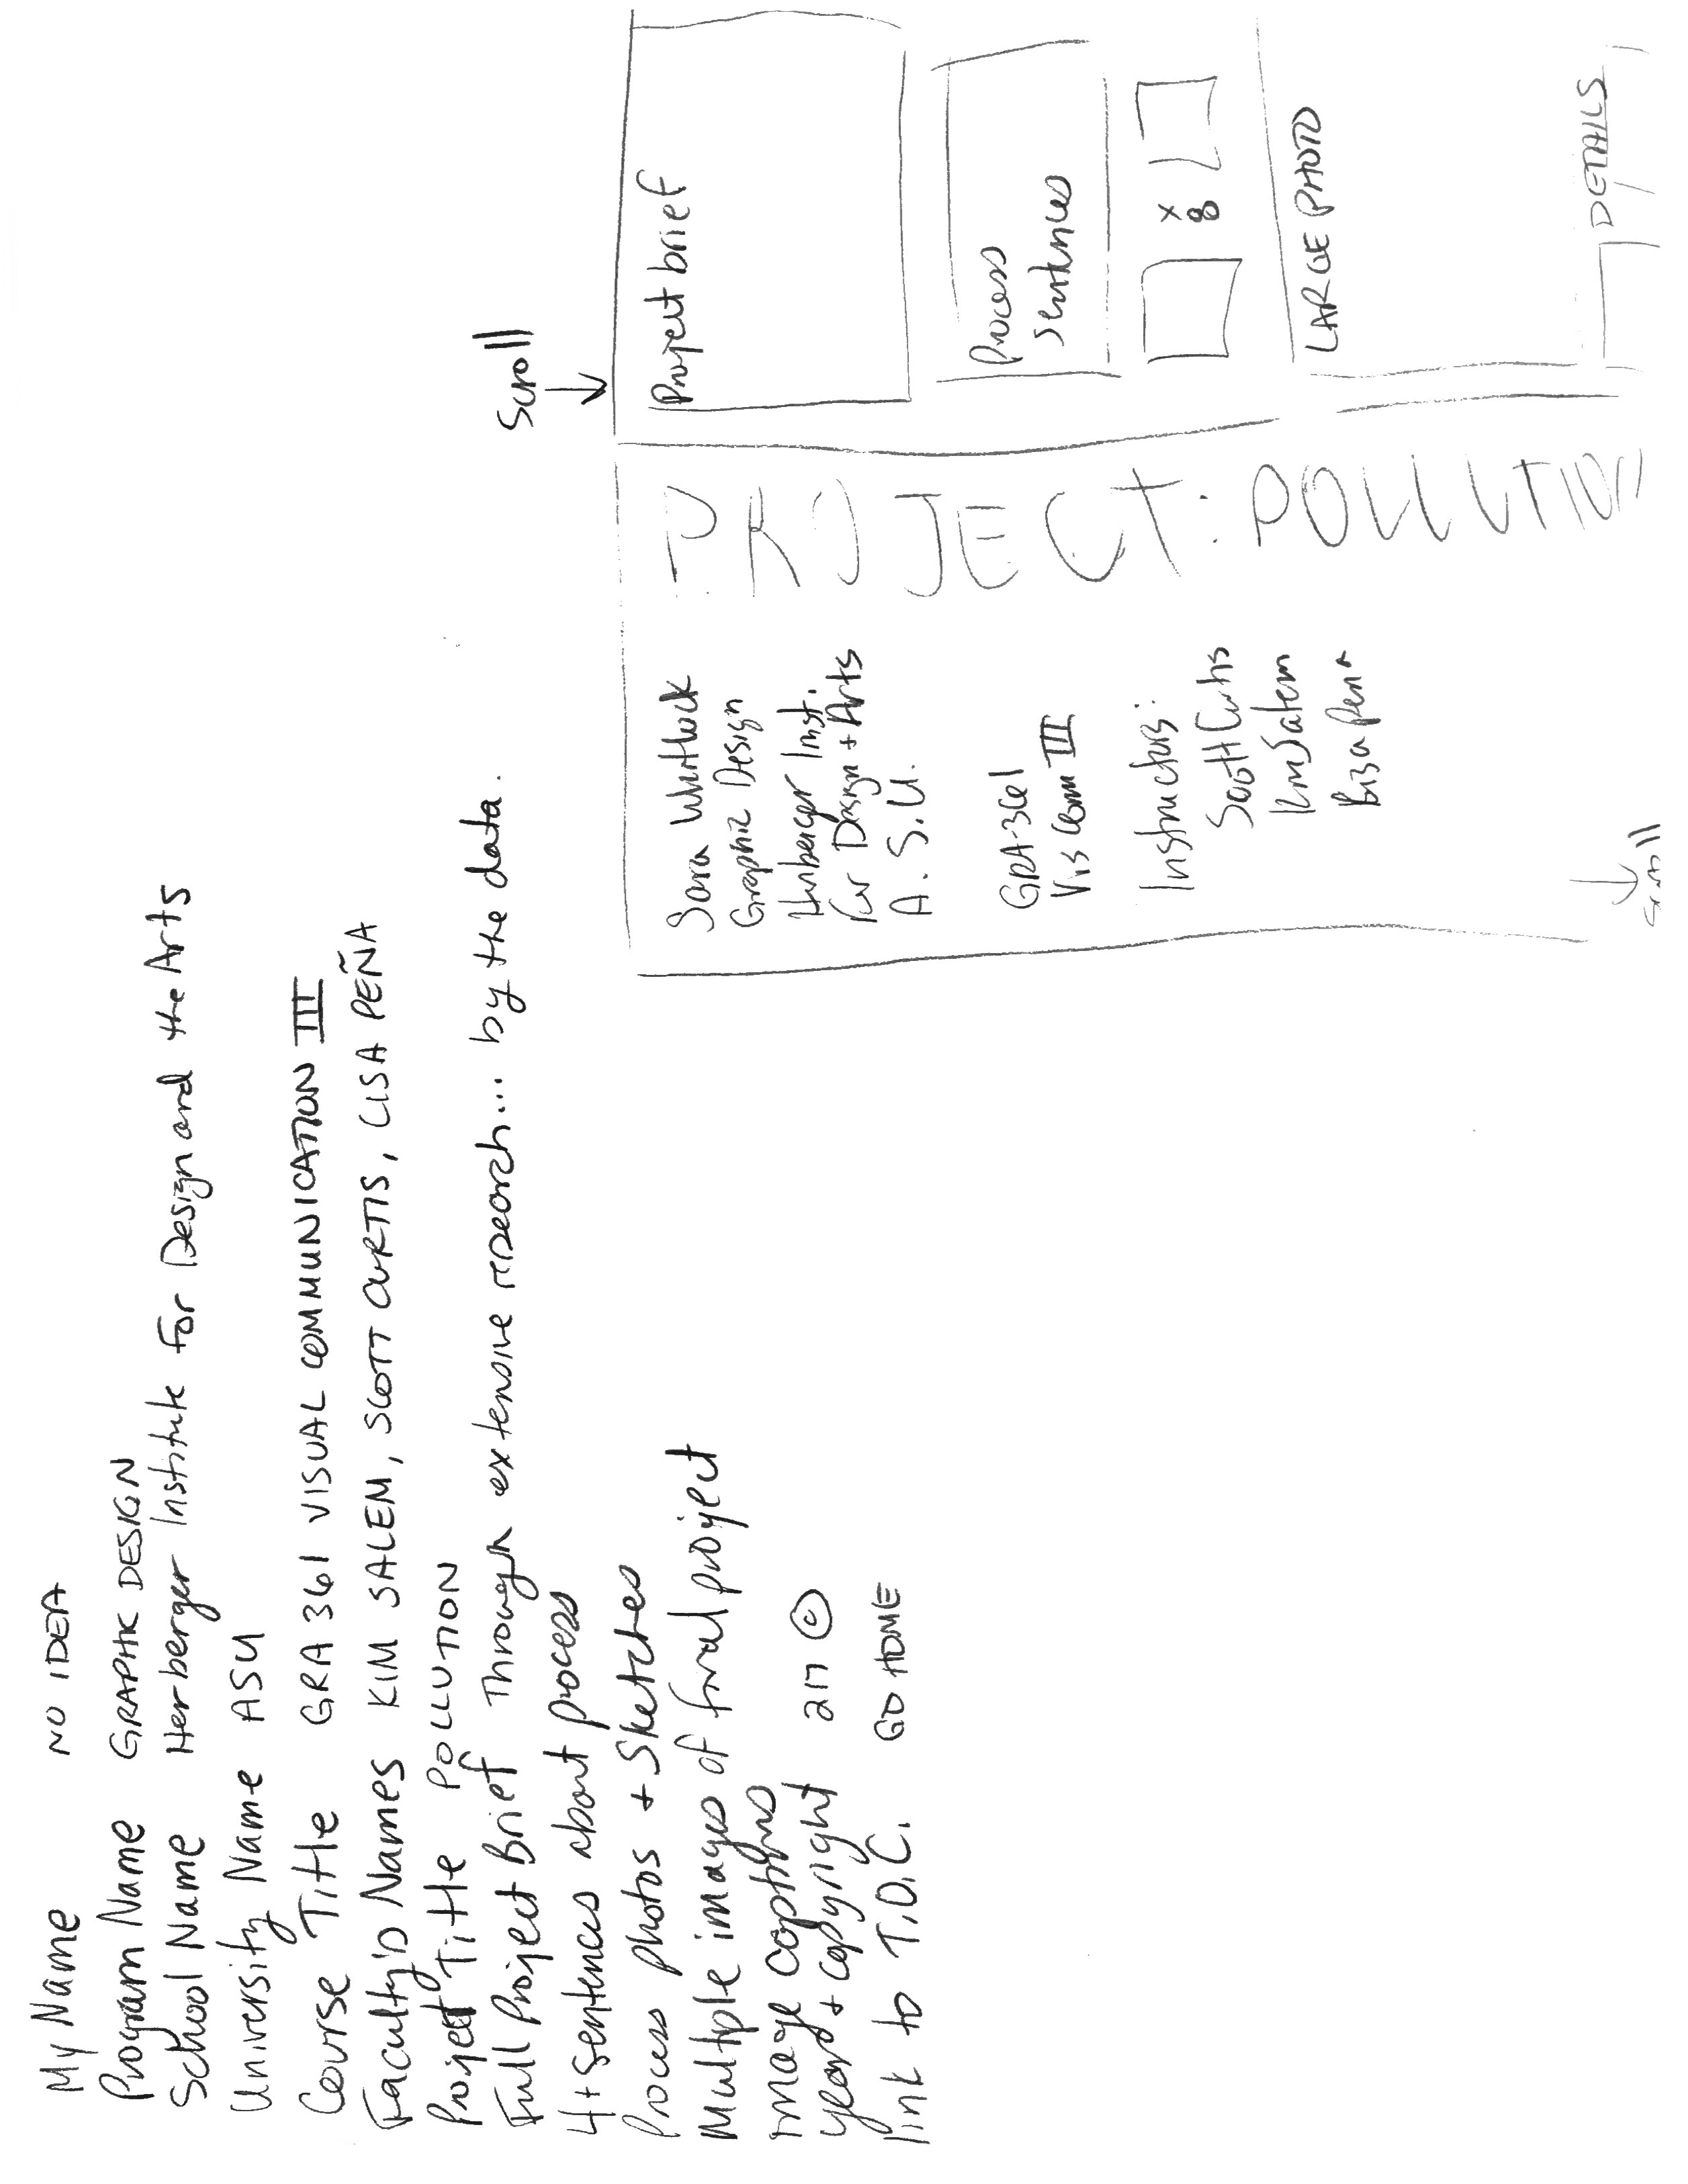 My Name NO IDEA
Program Name GRAPHIC DESIGN
School Name Herberger Institute for Design and the Arts
University Name ASU
Course Title GRA 361 VISUAL COMMUNICATION III
Faculty's Names KIM SALEM, SCOTT CURTIS, LISA PEÑA
Project Title POLLUTION
Full Project Brief Through extensive research... by the data.
4+ sentences about process
Process photos + Sketches
Multiple images of final project
image captions
year + copyright ©
link to T.D.C. GO HOME
Sara
Graphic Design
Herberger Inst.
for Design + Arts
A.S.U.
GRA-361
Vis Com III
Instructors:
Scott Curtis
Kim Salem
Pena
Scroll
PROJECT: POLLUTION
Scroll
Project brief
Process
sentences
x
8
LARGE PHOTO
DETAILS